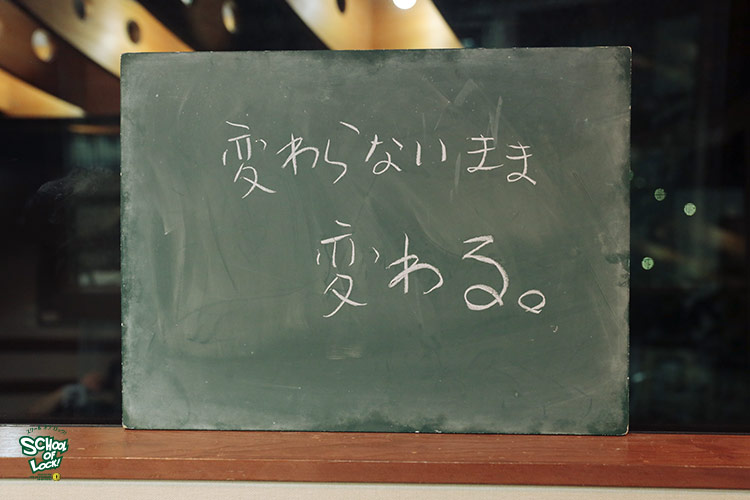 変わらないまま
変わる。
SCHOOL
OF
LOCK!